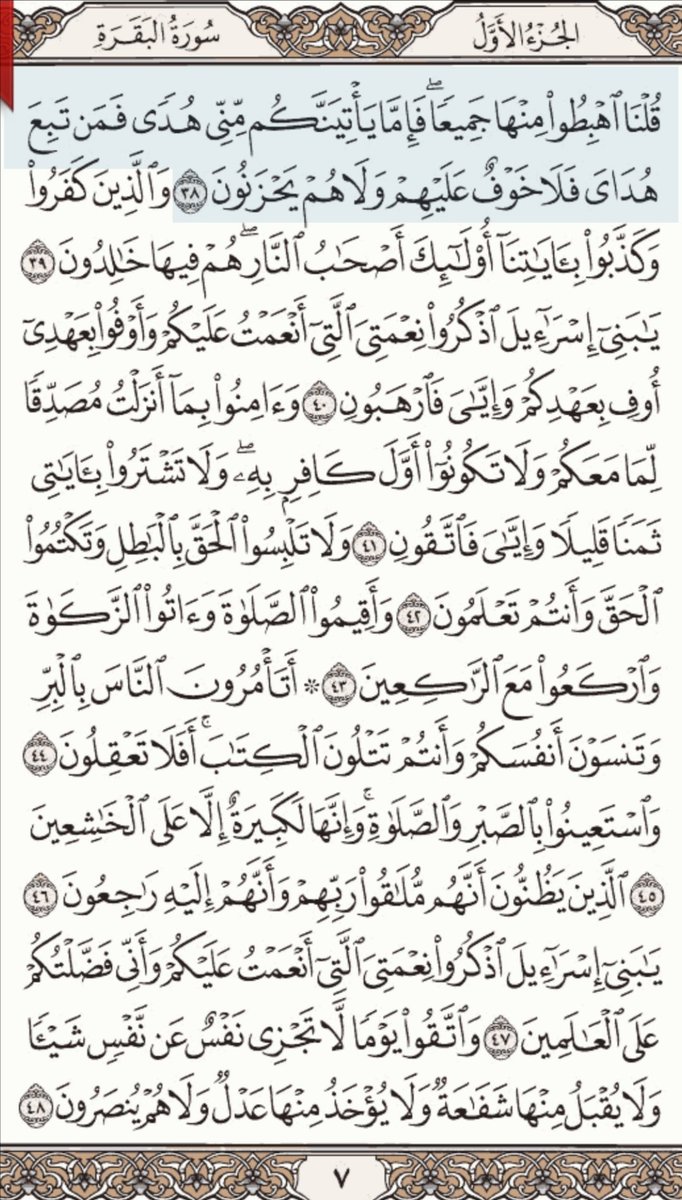 الجُزْءُ الأَوَّلُ
سُورَةُ البَقَرَةِ
قُلۡنَا ٱهۡبِطُواْ مِنۡهَا جَمِيعٗاۖ فَإِمَّا يَأۡتِيَنَّكُم مِّنِّي هُدٗى فَمَن تَبِعَ
هُدَايَ فَلَا خَوۡفٌ عَلَيۡهِمۡ وَلَا هُمۡ يَحۡزَنُونَ ٣٨ وَٱلَّذِينَ كَفَرُواْ
وَكَذَّبُواْ بِـَٔايَٰتِنَآ أُوْلَٰٓئِكَ أَصۡحَٰبُ ٱلنَّارِۖ هُمۡ فِيهَا خَٰلِدُونَ ٣٩
يَٰبَنِيٓ إِسۡرَٰٓءِيلَ ٱذۡكُرُواْ نِعۡمَتِيَ ٱلَّتِيٓ أَنۡعَمۡتُ عَلَيۡكُمۡ وَأَوۡفُواْ بِعَهۡدِيٓ
أُوفِ بِعَهۡدِكُمۡ وَإِيَّٰيَ فَٱرۡهَبُونِ ٤٠ وَءَامِنُواْ بِمَآ أَنزَلۡتُ مُصَدِّقٗا
لِّمَا مَعَكُمۡ وَلَا تَكُونُوٓاْ أَوَّلَ كَافِرِۭ بِهِۦۖ وَلَا تَشۡتَرُواْ بِـَٔايَٰتِي
ثَمَنٗا قَلِيلٗا وَإِيَّٰيَ فَٱتَّقُونِ ٤١ وَلَا تَلۡبِسُواْ ٱلۡحَقَّ بِٱلۡبَٰطِلِ وَتَكۡتُمُواْ
ٱلۡحَقَّ وَأَنتُمۡ تَعۡلَمُونَ ٤٢ وَأَقِيمُواْ ٱلصَّلَوٰةَ وَءَاتُواْ ٱلزَّكَوٰةَ
وَٱرۡكَعُواْ مَعَ ٱلرَّٰكِعِينَ ٤٣ ۞ أَتَأۡمُرُونَ ٱلنَّاسَ بِٱلۡبِرِّ
وَتَنسَوۡنَ أَنفُسَكُمۡ وَأَنتُمۡ تَتۡلُونَ ٱلۡكِتَٰبَۚ أَفَلَا تَعۡقِلُونَ ٤٤
وَٱسۡتَعِينُواْ بِٱلصَّبۡرِ وَٱلصَّلَوٰةِۚ وَإِنَّهَا لَكَبِيرَةٌ إِلَّا عَلَى ٱلۡخَٰشِعِينَ
٤٥ ٱلَّذِينَ يَظُنُّونَ أَنَّهُم مُّلَٰقُواْ رَبِّهِمۡ وَأَنَّهُمۡ إِلَيۡهِ رَٰجِعُونَ ٤٦
يَٰبَنِيٓ إِسۡرَٰٓءِيلَ ٱذۡكُرُواْ نِعۡمَتِيَ ٱلَّتِيٓ أَنۡعَمۡتُ عَلَيۡكُمۡ وَأَنِّي فَضَّلۡتُكُمۡ
عَلَى ٱلۡعَٰلَمِينَ ٤٧ وَٱتَّقُواْ يَوۡمٗا لَّا تَجۡزِي نَفۡسٌ عَن نَّفۡسٖ شَيۡـٔٗا
وَلَا يُقۡبَلُ مِنۡهَا شَفَٰعَةٞ وَلَا يُؤۡخَذُ مِنۡهَا عَدۡلٞ وَلَا هُمۡ يُنصَرُونَ ٤٨
٧